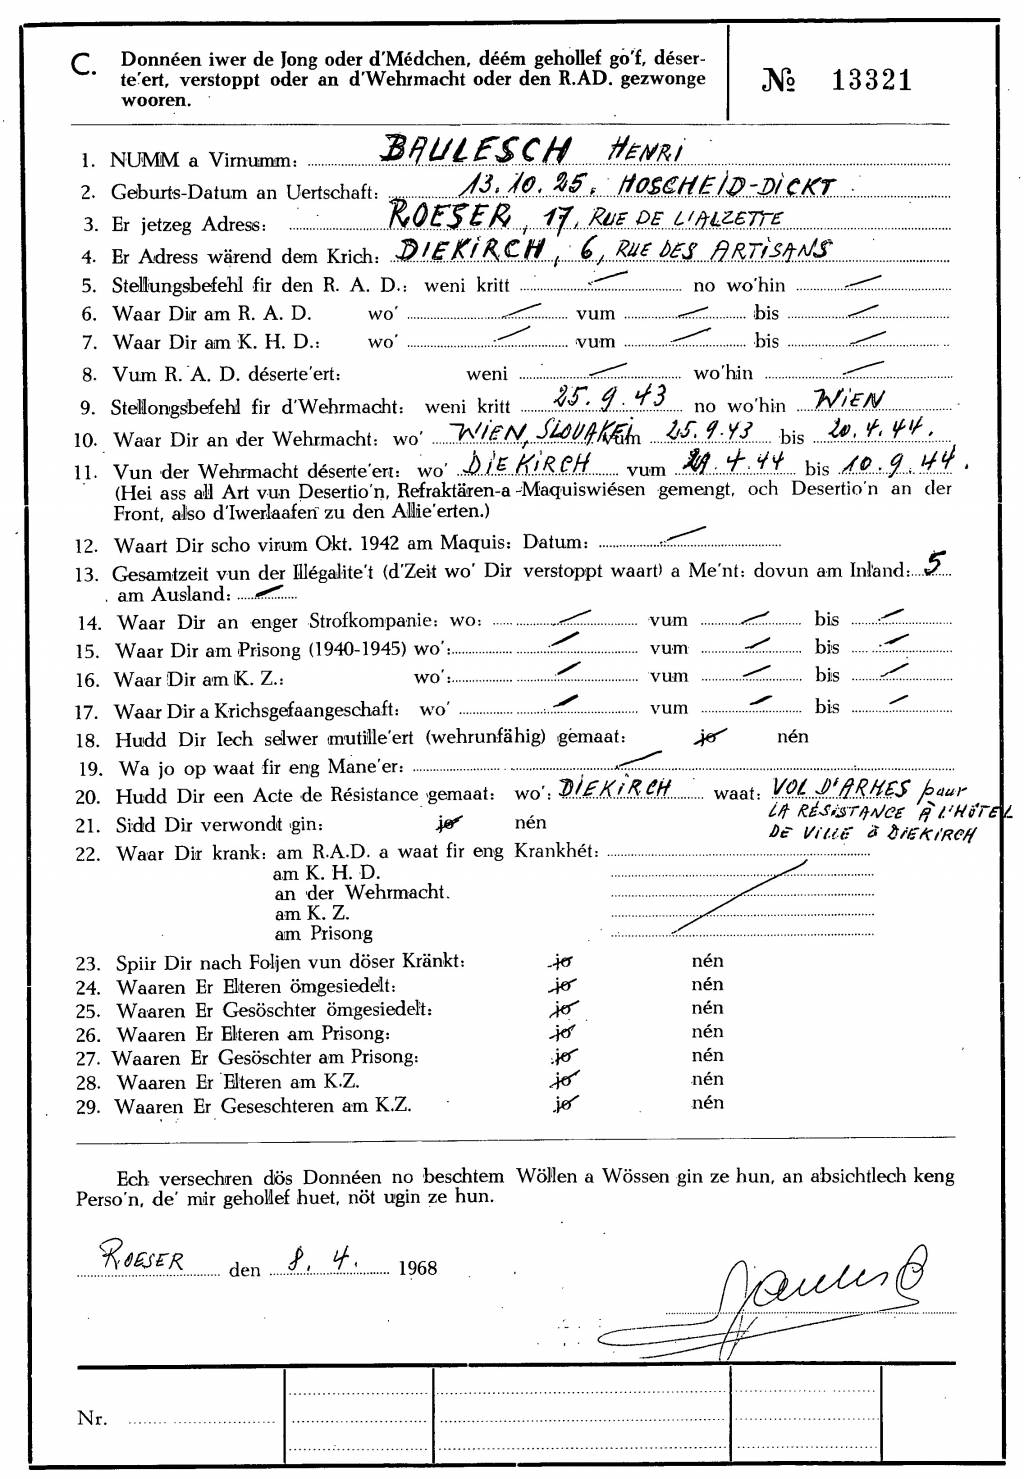 C. Donnéen iwer de Jong oder d'Médchen, déém gehollef go'f, déser-
te'ert, verstoppt oder an d'Wehrmacht oder den R.AD. gezwonge
wooren.
№ 13321
1. NUMM a Virnumm: BAULESCH HENRI
2. Geburts-Datum an Uertschaft: 13.10.25. HOSCHEID-DICKT
3. Er jetzeg Adress: ROESER, 17, RUE DE L'ALZETTE
4. Er Adress wärend dem Krich: DIEKIRCH, 6, RUE DES ARTISANS
5. Stellungsbefehl fir den R. A. D.: weni kritt — no wo'hin —
6. Waar Dir am R. A. D. wo' — vum — bis —
7. Waar Dir am K. H. D.: wo' — vum — bis —
8. Vum R. A. D. déserte'ert: weni — wo'hin —
9. Stellongsbefehl fir d'Wehrmacht: weni kritt 25.9.43 no wo'hin WIEN
10. Waar Dir an der Wehrmacht: wo' WIEN, SLOVAKEI vum 25.9.43 bis 20.4.44.
11. Vun der Wehrmacht déserte'ert: wo' DIEKIRCH vum 21.4.44 bis 10.9.44.
(Hei ass all Art vun Desertio'n, Refraktären-a -Maquiswiésen gemengt, och Desertio'n an der
Front, also d'Iwerlaafen zu den Allie'erten.)
12. Waart Dir scho virum Okt. 1942 am Maquis: Datum: —
13. Gesamtzeit vun der Illégalite't (d'Zeit wo' Dir verstoppt waart) a Me'nt: dovun am Inland: 5
am Ausland: —
14. Waar Dir an enger Strofkompanie: wo: — vum — bis —
15. Waar Dir am Prisong (1940-1945) wo': — vum — bis —
16. Waar Dir am K. Z.: wo': — vum — bis —
17. Waar Dir a Krichsgefaangeschaft: wo' — vum — bis —
18. Hudd Dir Iech selwer mutille'ert (wehrunfähig) gemaat: jo nén
19. Wa jo op waat fir eng Mane'er: —
20. Hudd Dir een Acte de Résistance gemaat: wo': DIEKIRCH waat: VOL D'ARMES pour
LA RÉSISTANCE À L'HÔTEL
21. Sidd Dir verwondt gin: jo nén
DE VILLE à DIEKIRCH
22. Waar Dir krank: am R.A.D. a waat fir eng Krankhét:
am K. H. D.
an der Wehrmacht.
am K. Z.
am Prisong
23. Spiir Dir nach Foljen vun döser Kränkt: jo nén
24. Waaren Er Elteren ömgesiedelt: jo nén
25. Waaren Er Gesöschter ömgesiedelt: jo nén
26. Waaren Er Elteren am Prisong: jo nén
27. Waaren Er Gesöschter am Prisong: jo nén
28. Waaren Er Elteren am K.Z. jo nén
29. Waaren Er Geseschteren am K.Z. jo nén
Ech versechren dös Donnéen no beschtem Wöllen a Wössen gin ze hun, an absichtlech keng
Perso'n, de' mir gehollef huet, nöt ugin ze hun.
ROESER den 8. 4. 1968
Nr.